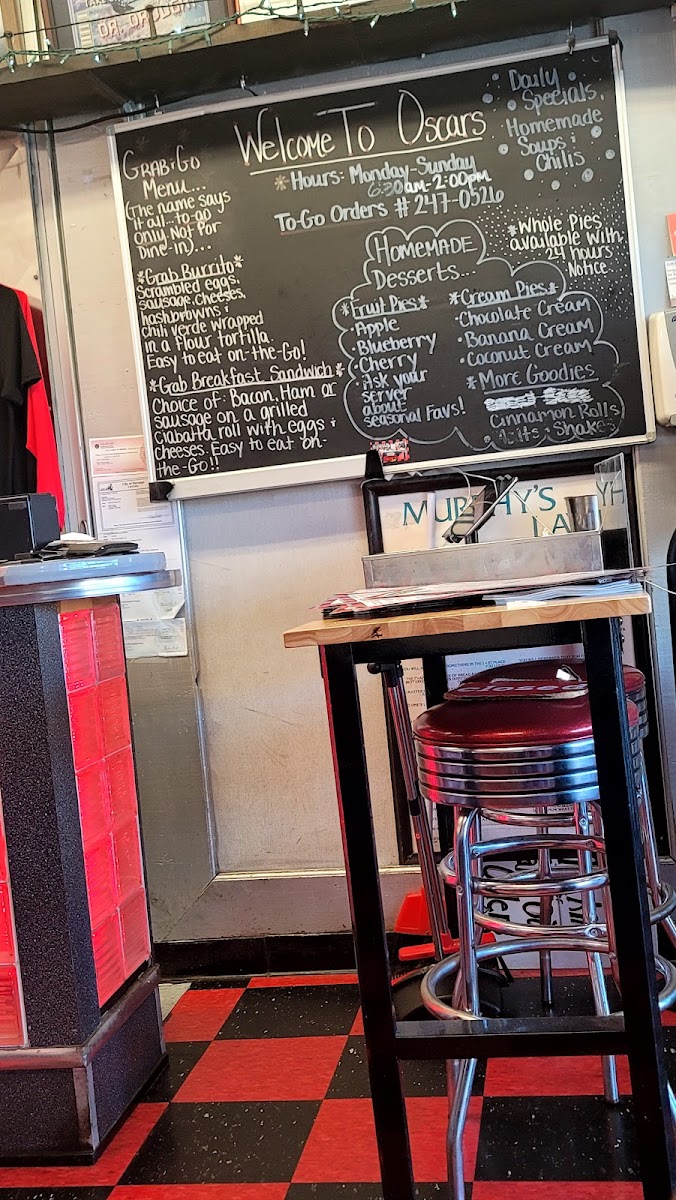 Grab & Go
Menu...
(The name says
it all-to-go
only. Not for
Dine-in)...
*Grab Burrito*
Scrambled eggs,
sausage, cheeses,
hashbrowns &
chili verde wrapped
in a flour tortilla.
Easy to eat on-the-Go!
*Grab Breakfast Sandwich*
Choice of: Bacon, Ham or
sausage on a grilled
Ciabatta roll with eggs &
cheeses. Easy to eat on-
the-Go!!
Welcome To Oscars
*Hours: Monday-Sunday
6:30am-2:00pm
To-Go Orders # 247-0526
Homemade
Desserts...
*Fruit Pies*
• Apple
• Blueberry
• Cherry
• Ask your
server
about
seasonal Favs!
*Cream Pies*
• Chocolate Cream
• Banana Cream
• Coconut Cream
*More Goodies
Cinnamon Rolls
Malts & Shakes
Daily
Specials,
Homemade
Soups &
Chilis
*Whole Pies
available with
24 hours
Notice
MURPHY'S
LA